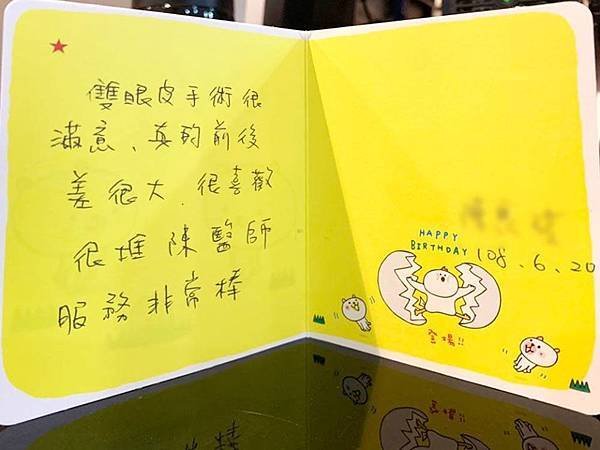 雙眼皮手術很
滿意、真的前後
差很大.很喜歡
很推陳醫師
服務非常棒
HAPPY
BIRTHDAY
108.6.20
登場!!